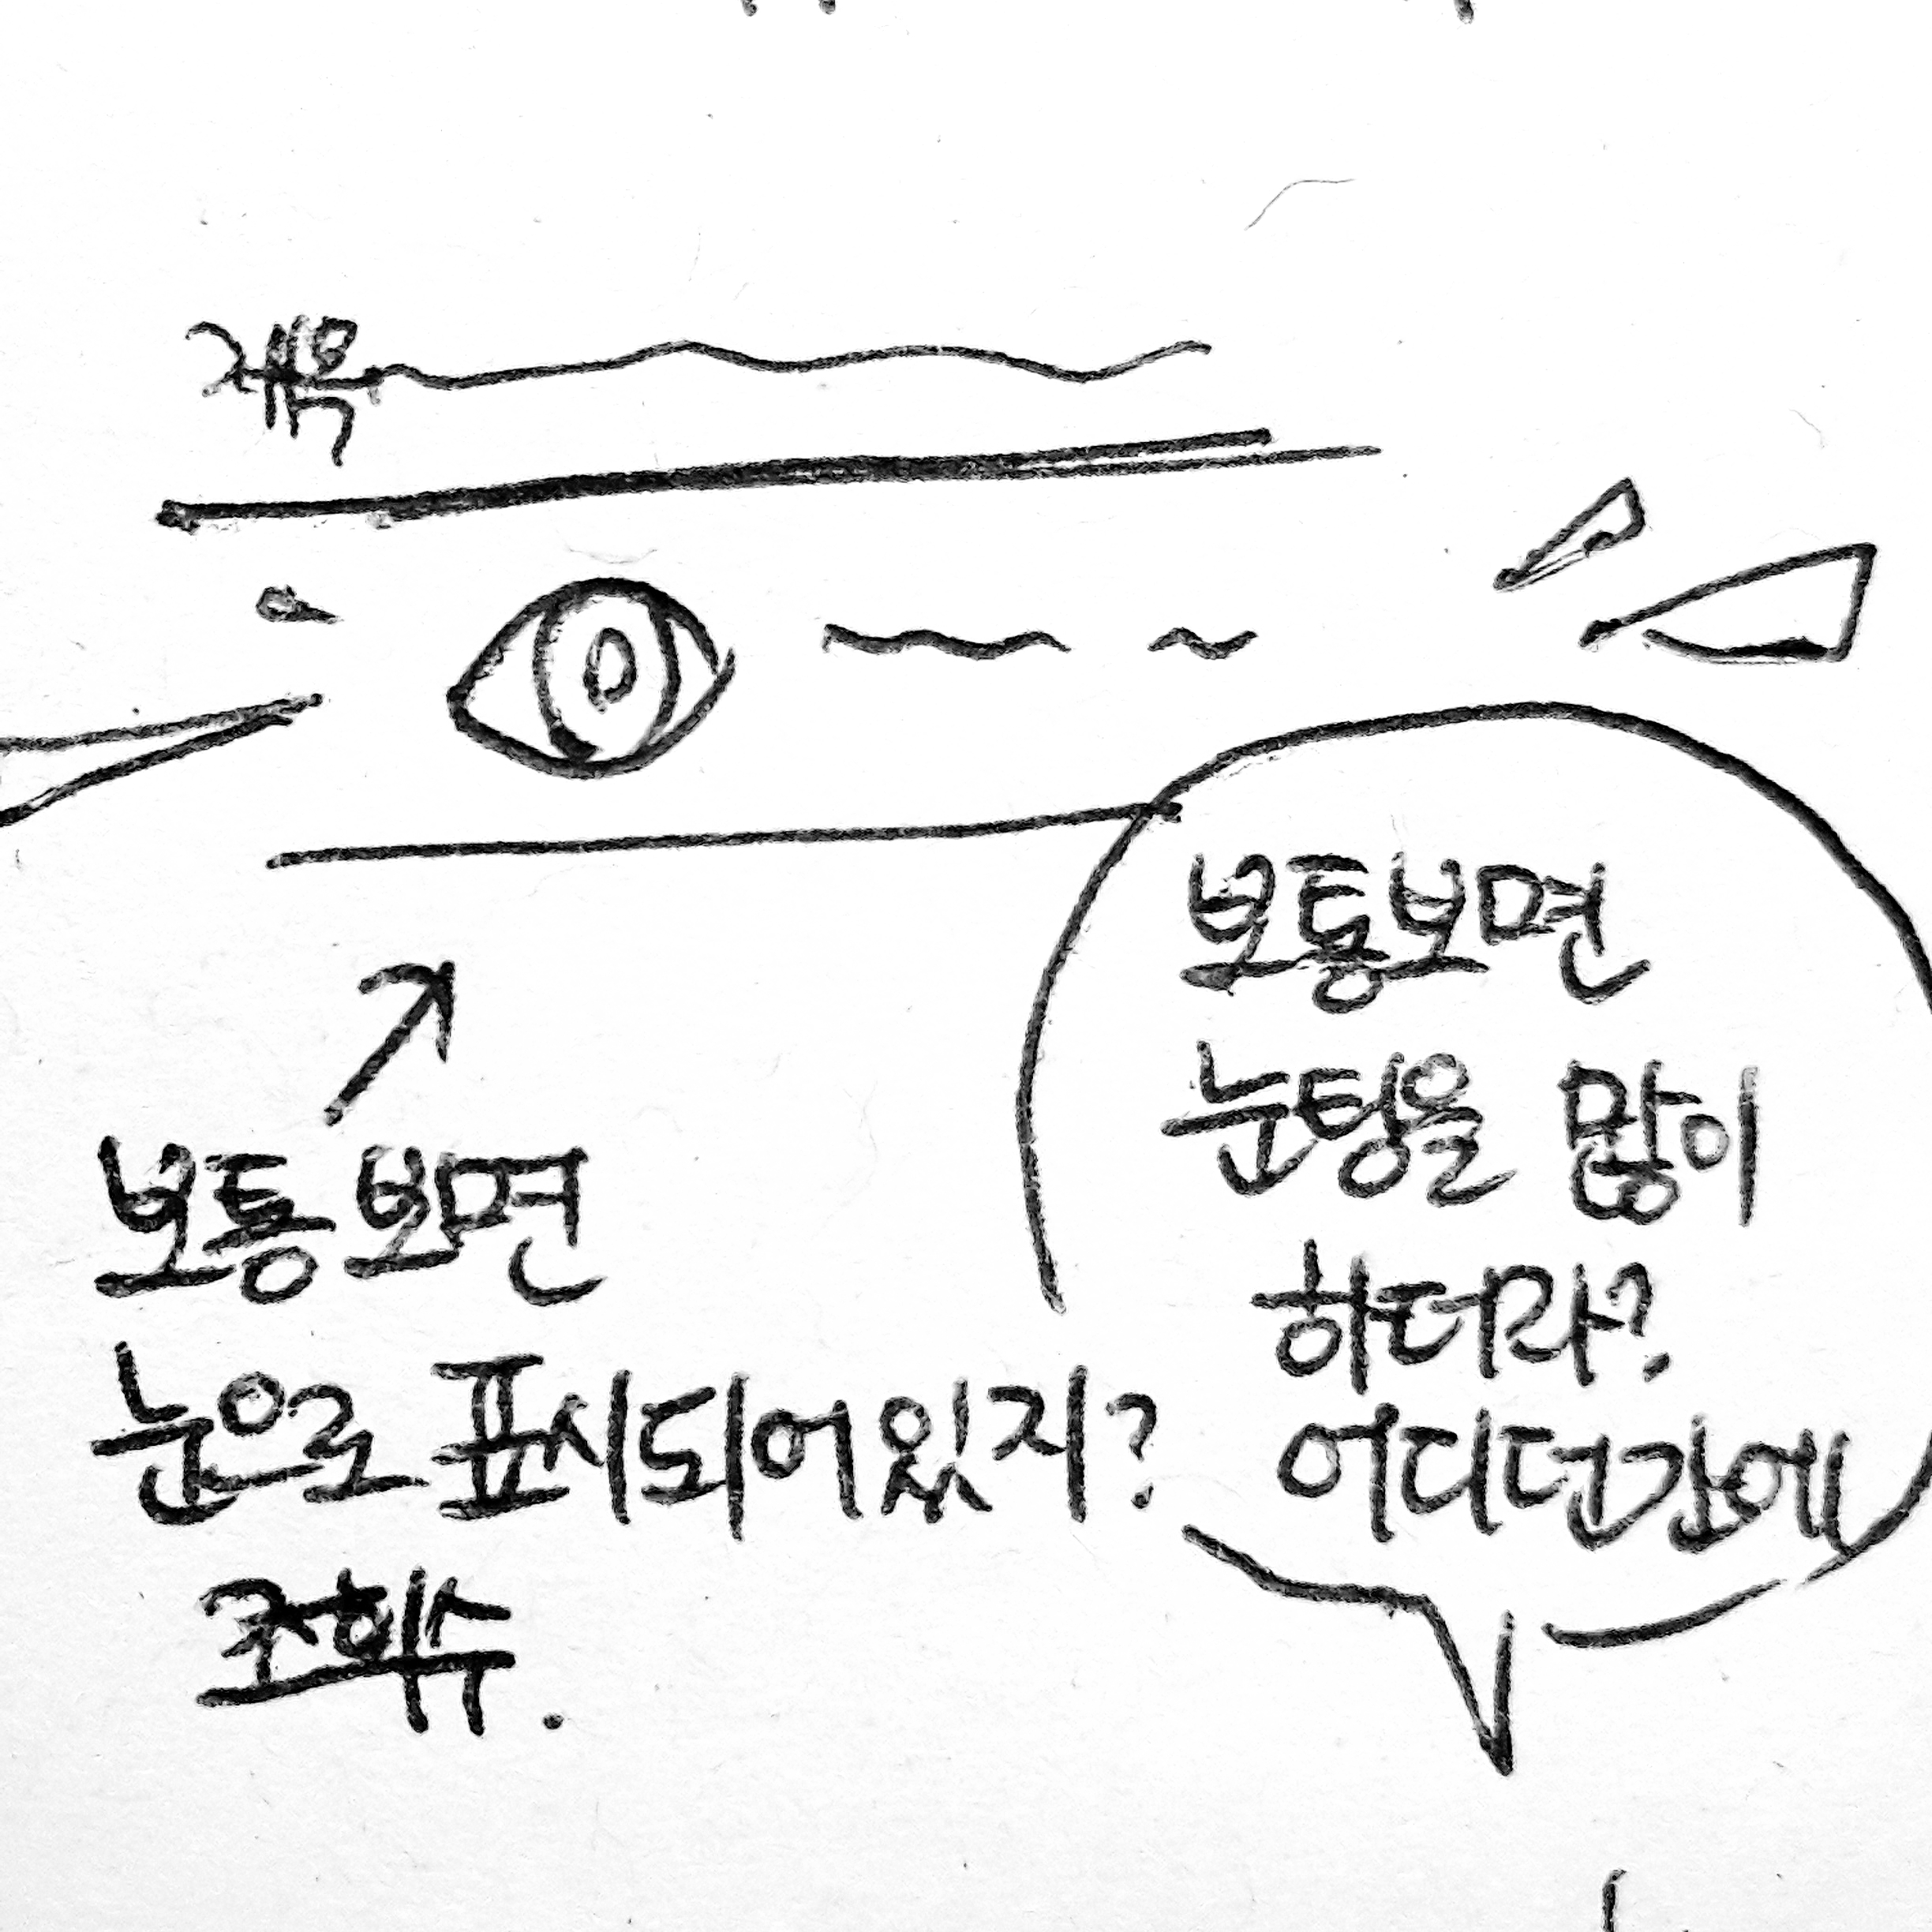 제목
보통 보면
눈으로 표시되어있지?
조회수.
보통보면
눈팅을 많이
하더라?